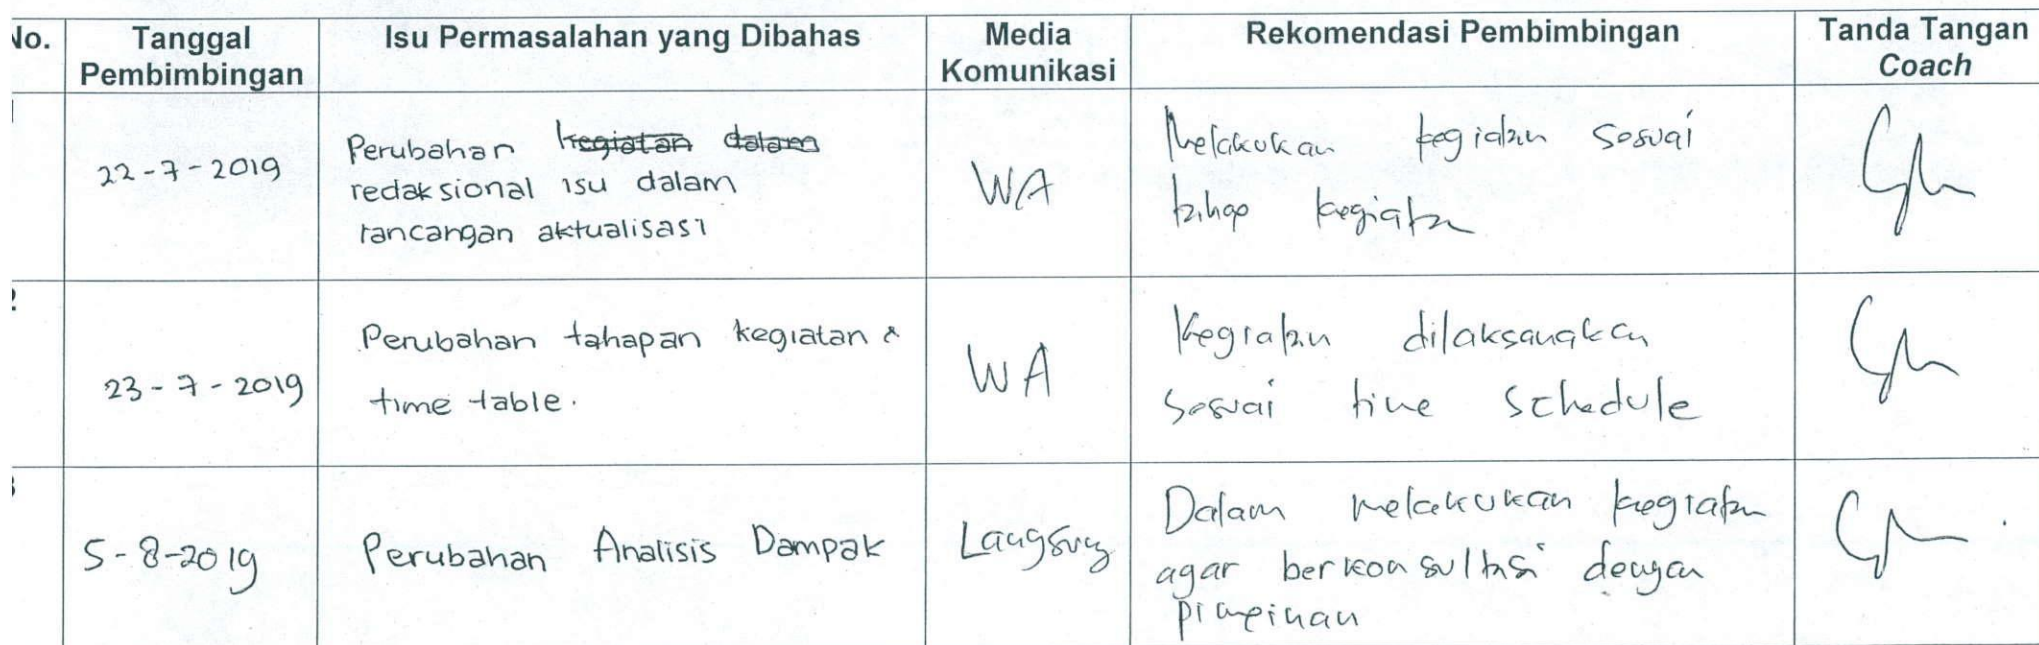 No. Tanggal Pembimbingan Isu Permasalahan yang Dibahas Media Komunikasi Rekomendasi Pembimbingan Tanda Tangan Coach
22-7-2019
Perubahan kegiatan dalam
redaksional isu dalam
rancangan aktualisasi
WA
Melakukan kegiatan sesuai
tahap kegiatan
23-7-2019
Perubahan tahapan kegiatan &
time table.
WA
Kegiatan dilaksanakan
sesuai time schedule
5-8-2019
Perubahan Analisis Dampak
Langsung
Dalam melakukan kegiatan
agar berkonsultasi dengan
pimpinan